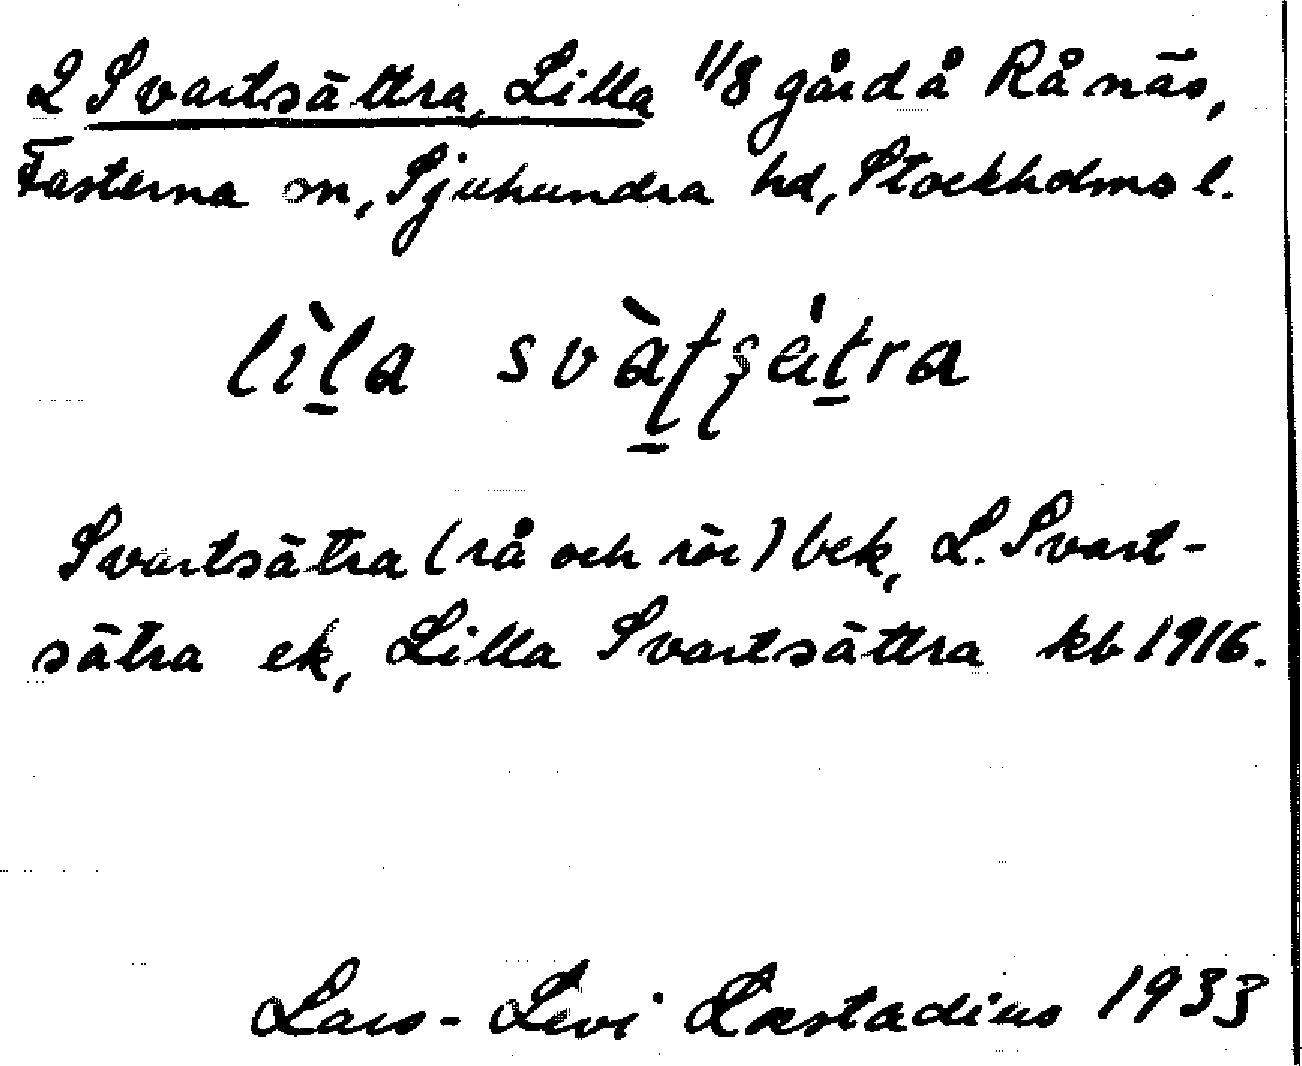 2 Svartsättra, Lilla 1/8 gård å Rånäs,
Fasterna sn, Sjuhundra hd, Stockholms l.
lìl̠a svàt̠ʂätra
Svartsätra (rå och rör) bek, L. Svart-
sätra ek, Lilla Svartsättra kb 1916.
Lars-Levi Læstadius 1933